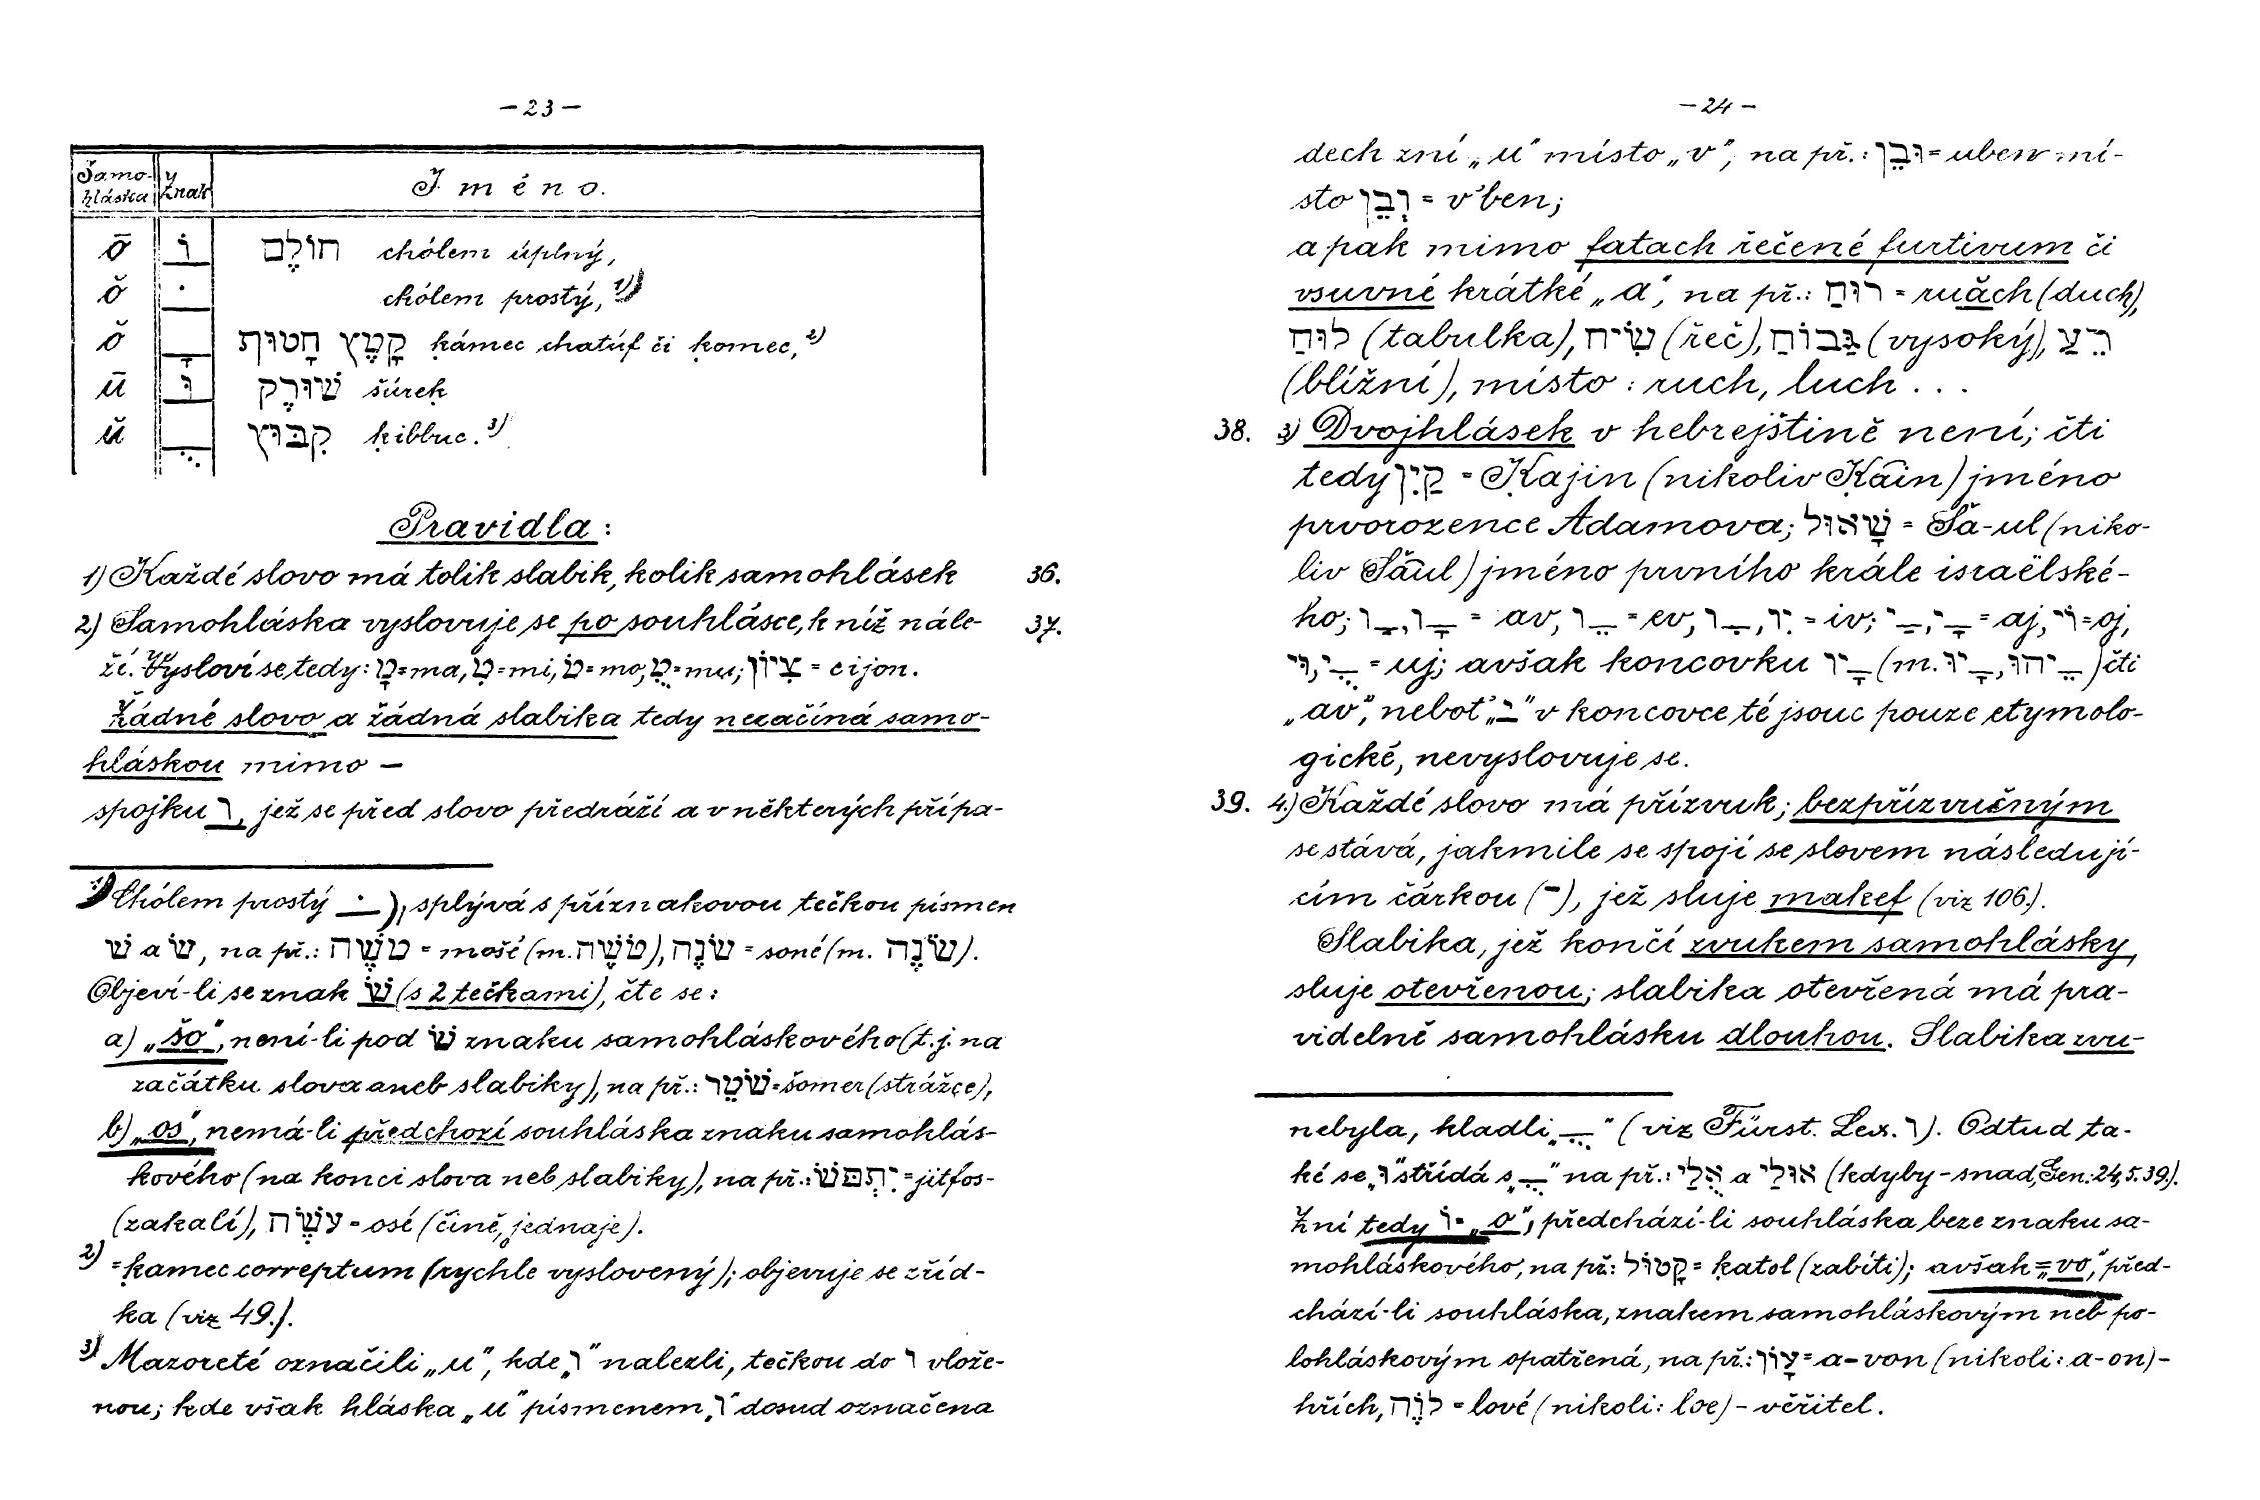 — 23 —
Samohláska Znak Jméno.
ō וֹ חוֹלֶם chólem úplný,
ŏ ֹ chólem prostý, 1)
ŏ ָ קָמֶץ חָטוּף ḳámec chatúf či ḳomec, 2)
ū וּ שׁוּרֶק šúreḳ
ŭ ֻ קִבּוּץ ḳibbuc. 3)
Pravidla:
1) Každé slovo má tolik slabik, kolik samohlásek 36.
2) Samohláska vyslovuje se po souhlásce, k níž nále- 37.
ží. Vysloví se tedy: מָ=ma, מִ=mi, מֹ=mo, מֻ=mu; צִיּוֹן = cijon.
Žádné slovo a žádná slabika tedy nezačíná samo-
hláskou mimo —
spojku ו, jež se před slovo předráží a v některých přípa-
1) Chólem prostý ֹ ), splývá s příznakovou tečkou písmen
שׁ a שׂ, na př.: מֹשֶׁה = mošé (m. מֹשֶׁה), שֹׂנֶה = soné (m. שֹׂנֶה).
Objeví-li se znak שֹׁ (s 2 tečkami), čte se:
a) „šo“, není-li pod שֹׁ znaku samohláskového (t.j. na
začátku slova aneb slabiky), na př.: שֹׁמֵר=šomer (strážce),
b) „os“, nemá-li předchozí souhláska znaku samohlás-
kového (na konci slova neb slabiky), na př.: יִתְפֹּשׂ=jitfos-
(zakalí), עֹשֶׂה = osé (čině, jednaje).
2) = ḳamec correptum (rychle vyslovený); objevuje se zříd-
ka (viz 49.).
3) Mazoreté označili „u“, kde „ו“ nalezli, tečkou do ו vlože-
nou; kde však hláska „u“ písmenem „ו“ dosud označena
— 24 —
dech zní „u“ místo „v“, na př.: וּבֵן = uben mí-
sto וְבֵן = v'ben;
a pak mimo fatach řečené furtivum či
vsuvné krátké „a“, na př.: רוּחַ = ruăch (duch),
לוּחַ (tabulka), שִׂיחַ (řeč), גָּבוֹחַ (vysoký), רֵעַ
(bližní), místo: ruch, luch . . .
38. 3) Dvojhlásek v hebrejštině není; čti
tedy קַיִן = Ḳajin (nikoliv Ḳain) jméno
prvorozence Adamova; שָׁאוּל = Ša-ul (niko-
liv Šaul) jméno prvního krále israëlské-
ho; ַו, ָו = av, ֵו = ev, ִו, ִיו = iv; ַי, ָי = aj, וֹי = oj,
ֻי, וּי = uj; avšak koncovku ָיו (m. ָיוּ, ֵיהוּ) čti
„av“, neboť „י“ v koncovce té jsouc pouze etymolo-
gické, nevyslovuje se.
39. 4.) Každé slovo má přízvuk; bezpřízvučným
se stává, jakmile se spojí se slovem následují-
cím čárkou (־), jež sluje makef (viz 106.).
Slabika, jež končí zvukem samohlásky,
sluje otevřenou; slabika otevřená má pra-
videlně samohlásku dlouhou. Slabika zvu-
nebyla, kladli „ֻ“ (viz Fürst. Lex. ו). Odtud ta-
ké se „וּ“ střídá s „ֻ“ na př.: אֻלַי a אוּלַי (kdyby-snad, Gen: 24, 5. 39.).
Zní tedy וֹ = „o“, předchází-li souhláska beze znaku sa-
mohláskového, na př.: קָטוֹל = ḳatol (zabíti); avšak = „vo“, před-
chází-li souhláska, znakem samohláskovým neb po-
lohláskovým opatřená, na př.: עָוֹן = a-von (nikoli: a-on)-
hřích, לֹוֶה = lové (nikoli: loe) - věřitel.